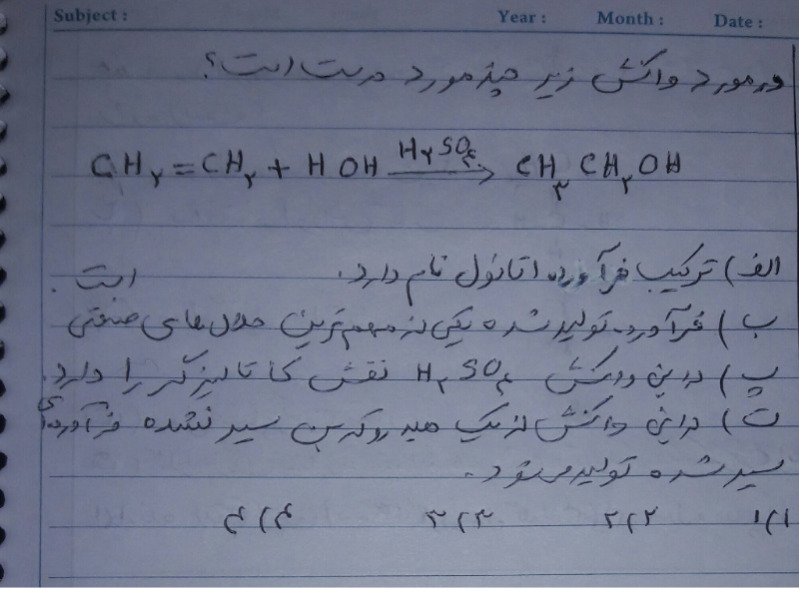 Subject : Year : Month : Date :
در مورد واکنش زیر چند مورد درست است؟
CH₂=CH₂ + HOH H₂SO₄→ CH₃CH₂OH
الف) ترکیب فرآورده اتانول نام دارد.
ب) فرآورده تولید شده یکی از مهم ترین حلال های صنعتی است.
پ) در این واکنش H₂SO₄ نقش کاتالیزگر را دارد.
ت) در این واکنش از یک هیدروکربن سیر نشده فرآورده‌ای
سیر شده تولید می شود.
۱) ۱ ۲) ۲ ۳) ۳ ۴) ۴